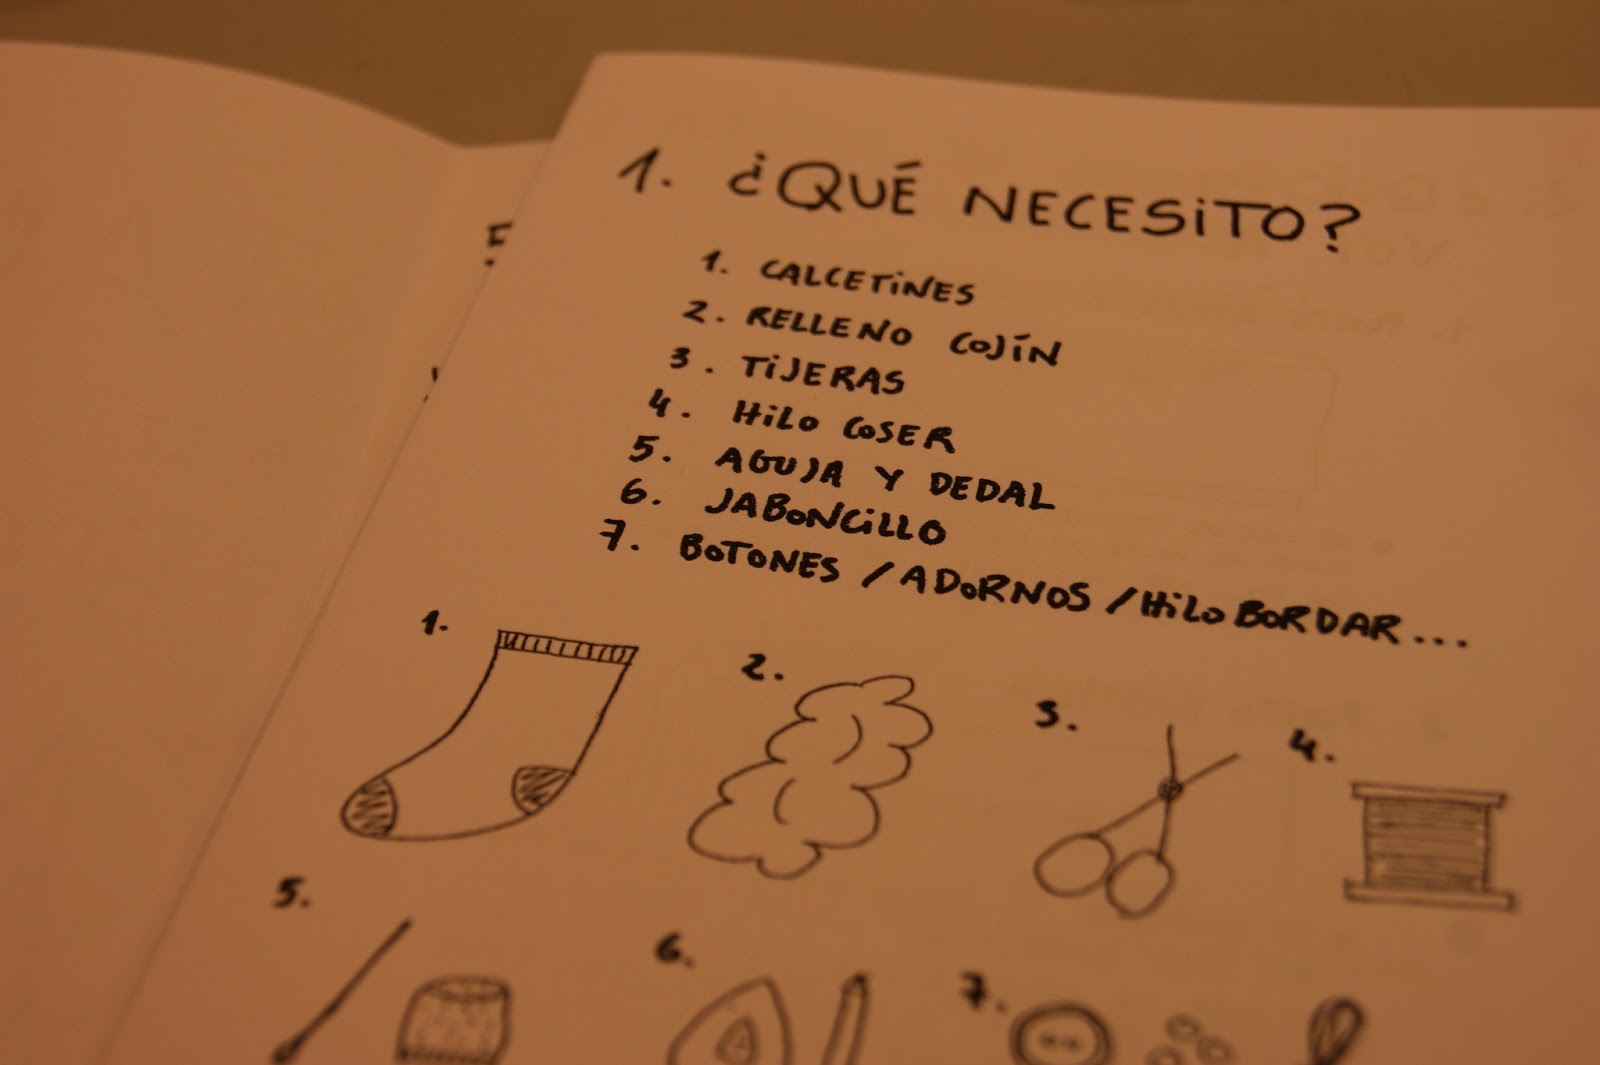 1. ¿QUÉ NECESITO?
1. CALCETINES
2. RELLENO COJÍN
3. TIJERAS
4. HILO COSER
5. AGUJA Y DEDAL
6. JABONCILLO
7. BOTONES / ADORNOS / HILO BORDAR...
1.
2.
3.
4.
5.
6.
7.